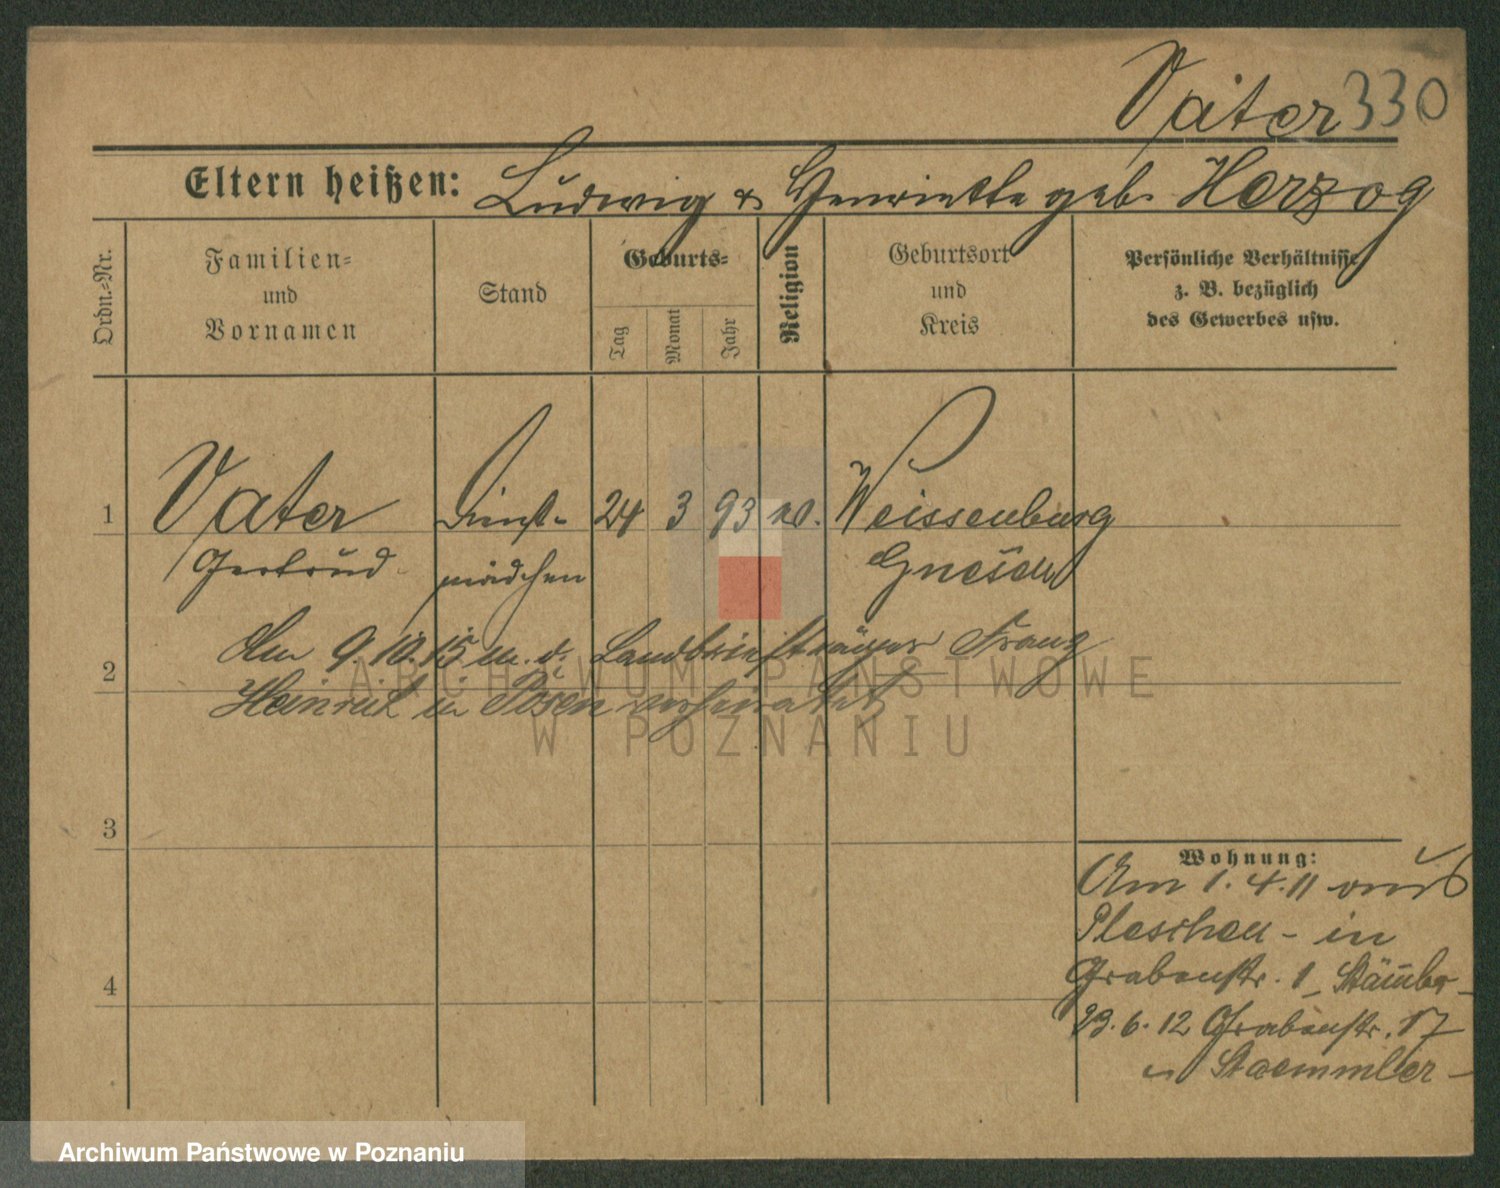 Vater 330
Eltern heißen: Ludwig & Henriette geb. Herzog
Ordn.-Nr.
Familien-
und
Vornamen
Stand
Geburts-
Tag
Monat
Jahr
Religion
Geburtsort
und
Kreis
Persönliche Verhältnisse
z. B. bezüglich
des Gewerbes usw.
1 Vater Dienst- 24 3 93 Weissenburg
Gertrud mädchen Gnesen
Am 9.10.15 m. d. Landbriefträger Franz
2
Heinrich in Posen verheiratet
ARCHIWUM PAŃSTWOWE
W POZNANIU
3
Wohnung:
Am 1.4.11 aus
Pleschen - in
4 Grabenstr. 1
23.6.12 Grabenstr. 17
Staemmler -
Archiwum Państwowe w Poznaniu